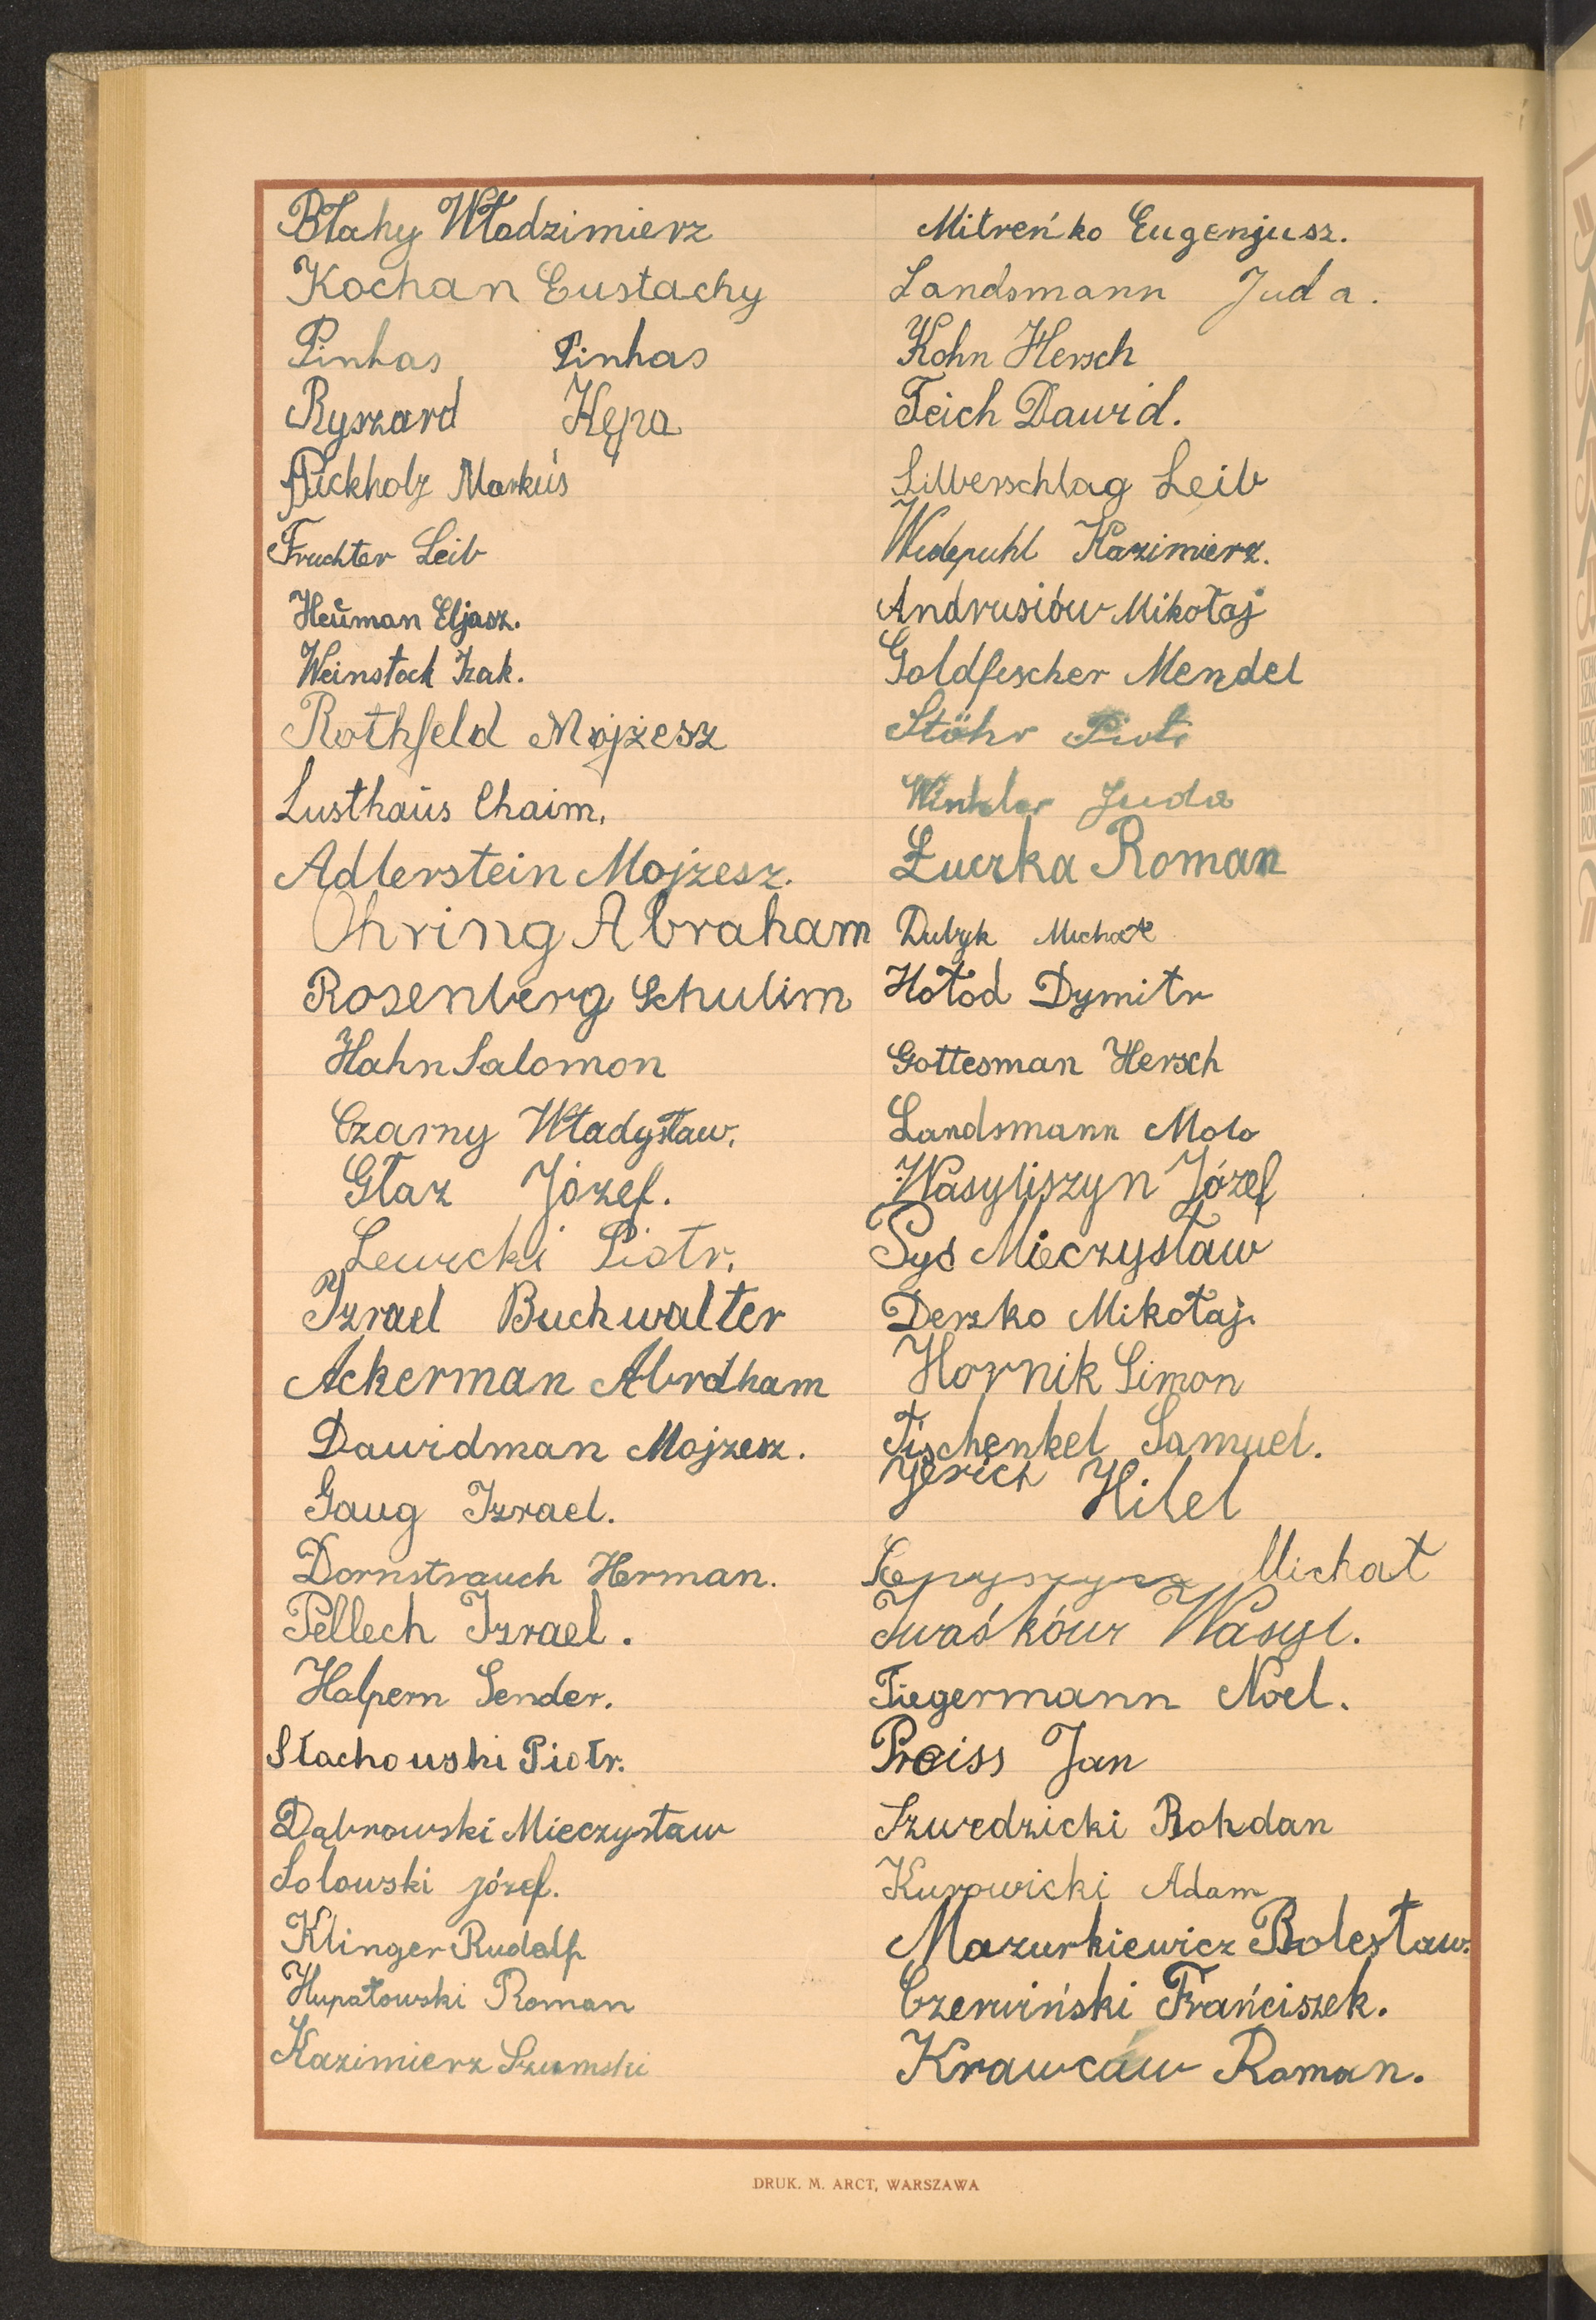 Błahy Włodzimierz
Kochan Eustachy
Pinhas Pinhas
Ryszard Kępa
Pickholz Markus
Fruchter Leib
Heuman Eljasz.
Weinstock Izak.
Rothfeld Mojżesz
Lusthaus Chaim.
Adlerstein Mojżesz.
Ohring Abraham
Rosenberg Schulim
Hahn Salomon
Czarny Władysław.
Głaz Józef.
Lewicki Piotr.
Izrael Buchwalter
Ackerman Abraham
Dawidman Mojzesz.
Gaug Izrael.
Dornstrauch Herman.
Pellech Izrael.
Halpern Sender.
Stachowski Piotr.
Dąbrowski Mieczysław
Solowski józef.
Klinger Rudolf
Hupałowski Roman
Kazimierz Szumski
Mitreńko Eugenjusz.
Landsmann Juda.
Kohn Hersch
Teich Dawid.
Silberschlag Leib
Kazimierz.
Andrusiów Mikołaj
Goldfischer Mendel
Stöhr Piotr
Winkler Juda
Łuczka Roman
Dubyk Michał
Hołod Dymitr
Gottesman Hersch
Landsmann
Wasyliszyn Józef
Syś Mieczysław
Derzko Mikołaj.
Hornik Simon
Tischenkel Samuel.
Jerich Hilel
Michał
Iwaśków Wasyl.
Tiegermann Noel.
Preiss Jan
Szwedzicki Bohdan
Kurowicki Adam
Mazurkiewicz Bolesław.
Czerwiński Frańciszek.
Krawców Roman.
DRUK. M. ARCT, WARSZAWA